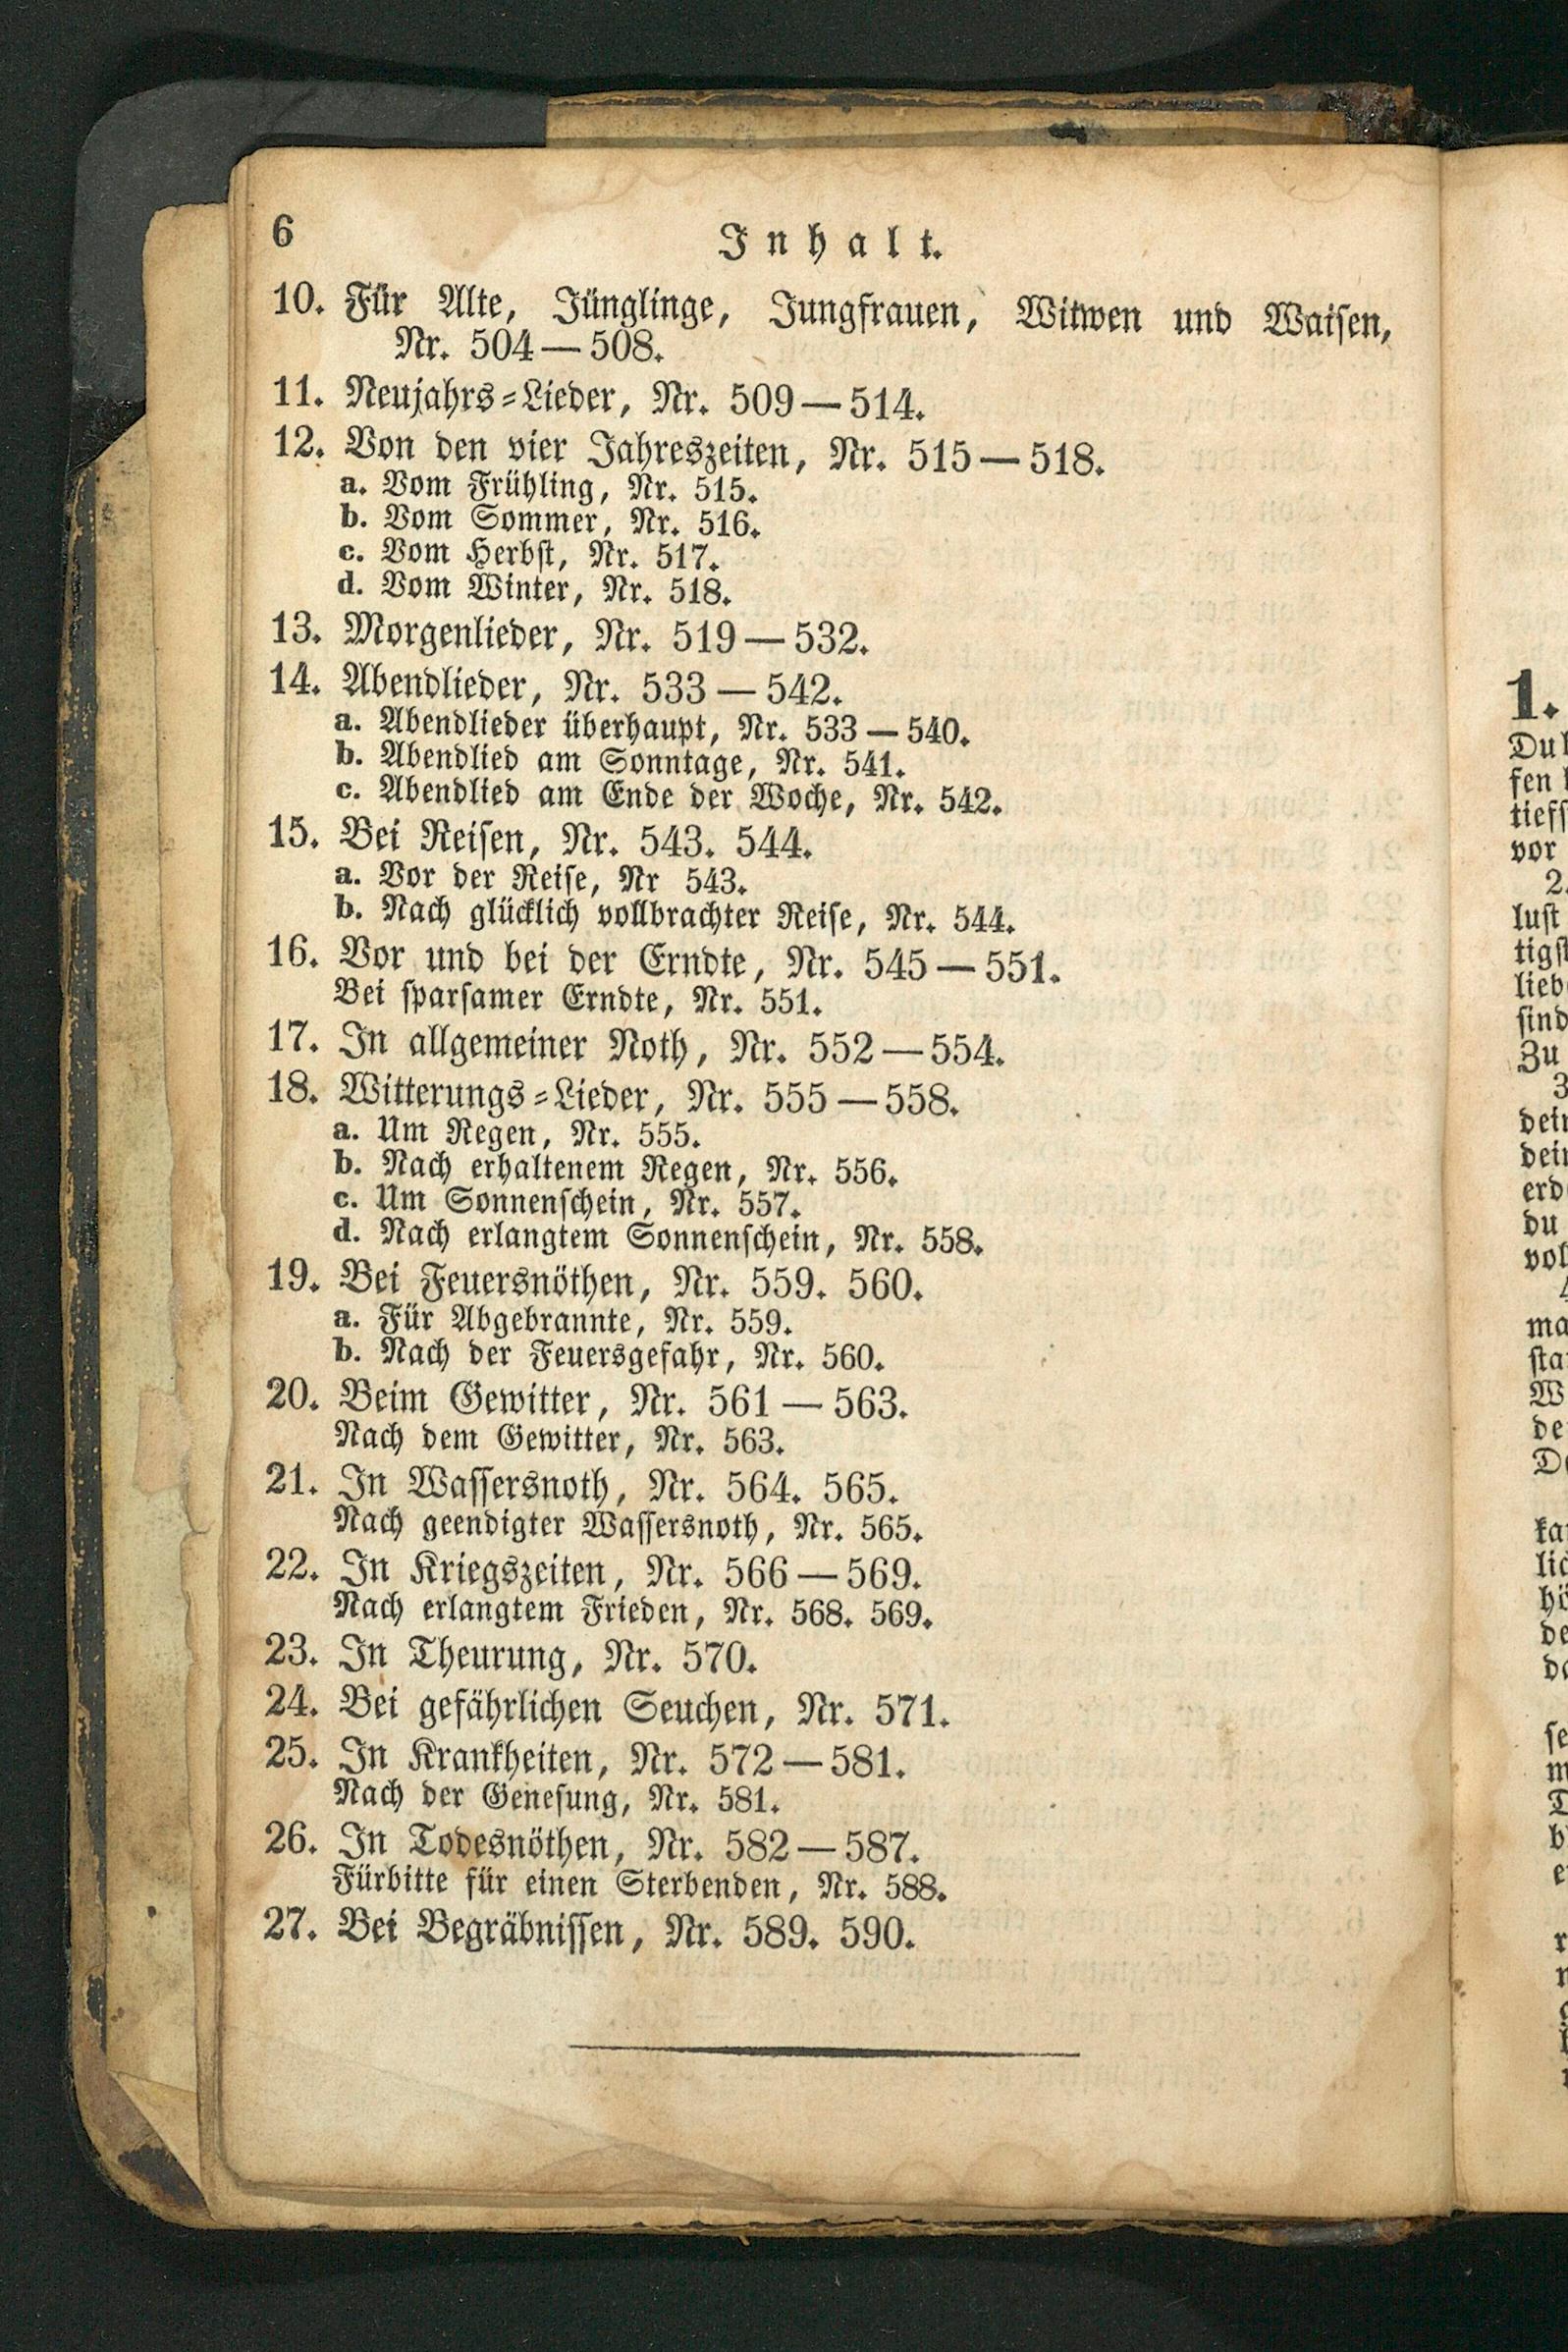 6
Inhalt.
10. Für Alte, Jünglinge, Jungfrauen, Witwen und Waisen,
Nr. 504—508.
11. Neujahrs-Lieder, Nr. 509—514.
12. Von den vier Jahreszeiten, Nr. 515—518.
a. Vom Frühling, Nr. 515.
b. Vom Sommer, Nr. 516.
c. Vom Herbst, Nr. 517.
d. Vom Winter, Nr. 518.
13. Morgenlieder, Nr. 519—532.
14. Abendlieder, Nr. 533—542.
a. Abendlieder überhaupt, Nr. 533—540.
b. Abendlied am Sonntage, Nr. 541.
c. Abendlied am Ende der Woche, Nr. 542.
15. Bei Reisen, Nr. 543. 544.
a. Vor der Reise, Nr 543.
b. Nach glücklich vollbrachter Reise, Nr. 544.
16. Vor und bei der Erndte, Nr. 545—551.
Bei sparsamer Erndte, Nr. 551.
17. In allgemeiner Noth, Nr. 552—554.
18. Witterungs-Lieder, Nr. 555—558.
a. Um Regen, Nr. 555.
b. Nach erhaltenem Regen, Nr. 556.
c. Um Sonnenschein, Nr. 557.
d. Nach erlangtem Sonnenschein, Nr. 558.
19. Bei Feuersnöthen, Nr. 559. 560.
a. Für Abgebrannte, Nr. 559.
b. Nach der Feuersgefahr, Nr. 560.
20. Beim Gewitter, Nr. 561—563.
Nach dem Gewitter, Nr. 563.
21. In Wassersnoth, Nr. 564. 565.
Nach geendigter Wassersnoth, Nr. 565.
22. In Kriegszeiten, Nr. 566—569.
Nach erlangtem Frieden, Nr. 568. 569.
23. In Theurung, Nr. 570.
24. Bei gefährlichen Seuchen, Nr. 571.
25. In Krankheiten, Nr. 572—581.
Nach der Genesung, Nr. 581.
26. In Todesnöthen, Nr. 582—587.
Fürbitte für einen Sterbenden, Nr. 588.
27. Bei Begräbnissen, Nr. 589. 590.
1.
vor
lust
sind
Zu
du